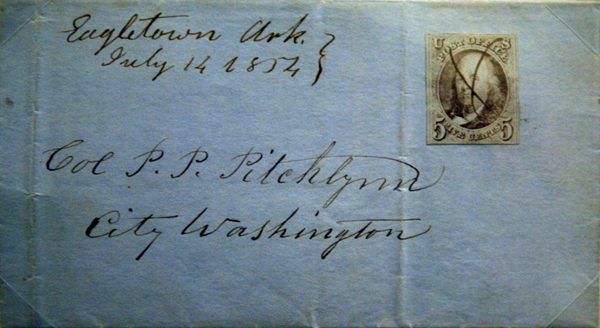 Eagletown Ark.
July 14 1854
U S
POST OFFICE
5 FIVE CENTS 5
Col P. P. Pitchlynn
City Washington